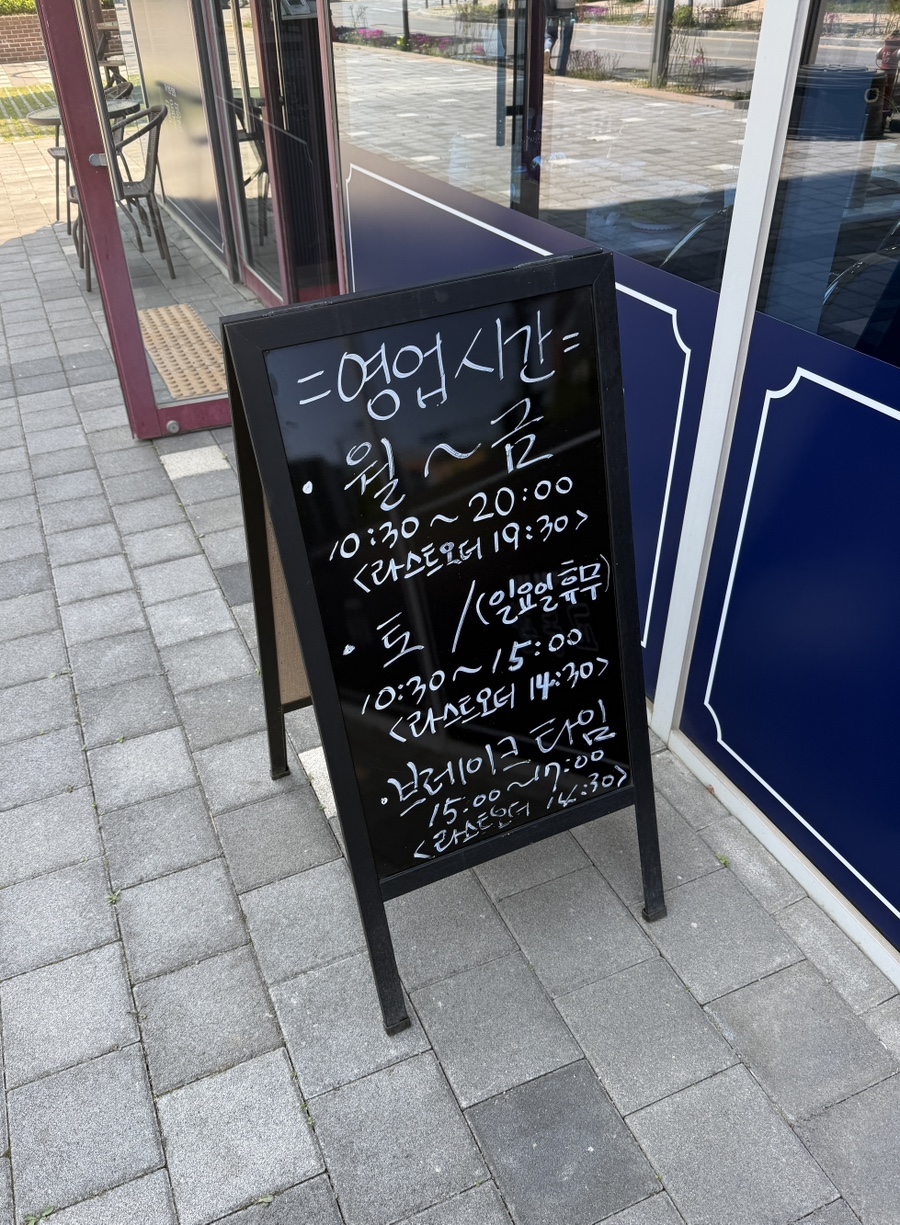 =영업시간=
· 월 ~ 금
10:30 ~ 20:00
<라스트오더 19:30>
· 토 / (일요일 휴무)
10:30 ~ 15:00
<라스트오더 14:30>
· 브레이크 타임
15:00 ~ 17:00
<라스트오더 14:30>